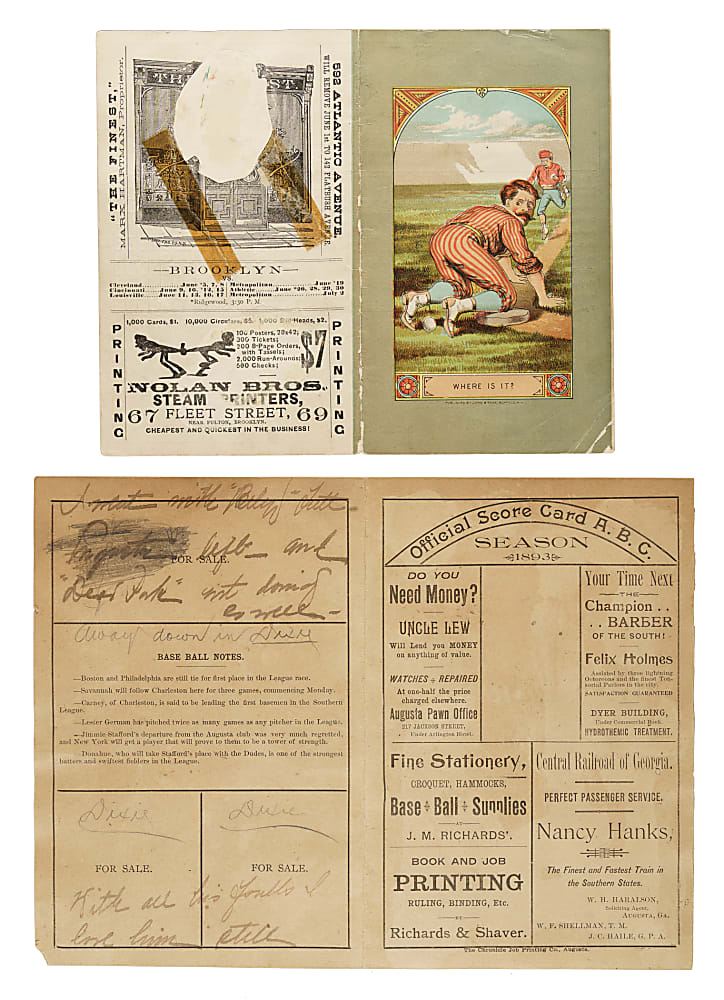 "THE FINEST,"
MARX HARTMAN, Proprietor.
TH ST.
592 ATLANTIC AVENUE.
WILL REMOVE JUNE 1st TO 142 FLATBUSH AVENUE.
—BROOKLYN—
VS.
Cleveland......June *5, 7, 8 Metropolitan......June *19
Cincinnati....June 9, 10, *12, 15 Athletic....June *26, 28, 29, 30
Louisville......June 11, 13, 16, 17 Metropolitan......July 2
*Ridgewood, 3:30 P. M.
PRINTING
1,000 Cards, $1. 10,000 Circulars, $5. 1,000 Bill Heads, $2.
100 Posters, 28x42;
300 Tickets;
200 8-Page Orders,
with Tassels;
2,000 Run-Arounds;
500 Checks;
$7
PRINTING
NOLAN BROS.
STEAM PRINTERS,
67 FLEET STREET, 69
NEAR FULTON, BROOKLYN.
CHEAPEST AND QUICKEST IN THE BUSINESS!
WHERE IS IT?
left and
FOR SALE.
not doing
so well —
Away down in Dixie
BASE BALL NOTES.
—Boston and Philadelphia are still tie for first place in the League race.
—Savannah will follow Charleston here for three games, commencing Monday.
—Carney, of Charleston, is said to be lending the first basemen in the Southern
League.
—Lester German has pitched twice as many games as any pitcher in the League.
—Jimmie Stafford's departure from the Augusta club was very much regretted,
and New York will get a player that will prove to them to be a tower of strength.
—Donahue, who will take Stafford's place with the Dudes, is one of the strongest
batters and swiftest fielders in the League.
Dixie
Dixie
FOR SALE.
FOR SALE.
With all his faults I
love him still
Official Score Card A. B. C.
SEASON
1893
DO YOU
Need Money?
UNCLE LEW
Will Lend you MONEY
on anything of value.
WATCHES ÷ REPAIRED
At one-half the price
charged elsewhere.
Augusta Pawn Office
217 JACKSON STREET,
Under Arlington Hotel.
Your Time Next
—THE—
Champion . .
. . BARBER
OF THE SOUTH!
Felix Holmes
Assisted by three lightning
Octoroons and the finest Ton-
sorial Parlors in the city.
SATISFACTION GUARANTEED
DYER BUILDING,
Under Commercial Bank.
HYDROTHEMIC TREATMENT.
Fine Stationery,
CROQUET, HAMMOCKS,
Base ÷ Ball ÷ Supplies
AT
J. M. RICHARDS'.
BOOK AND JOB
PRINTING
RULING, BINDING, Etc.
BY
Richards & Shaver.
Central Railroad of Georgia.
PERFECT PASSENGER SERVICE.
Nancy Hanks,
The Finest and Fastest Train in
the Southern States.
W. H. HARALSON,
Soliciting Agent,
AUGUSTA, GA.
W. F. SHELLMAN, T. M.
J. C. HAILE, G. P. A.
The Chronicle Job Printing Co., Augusta.